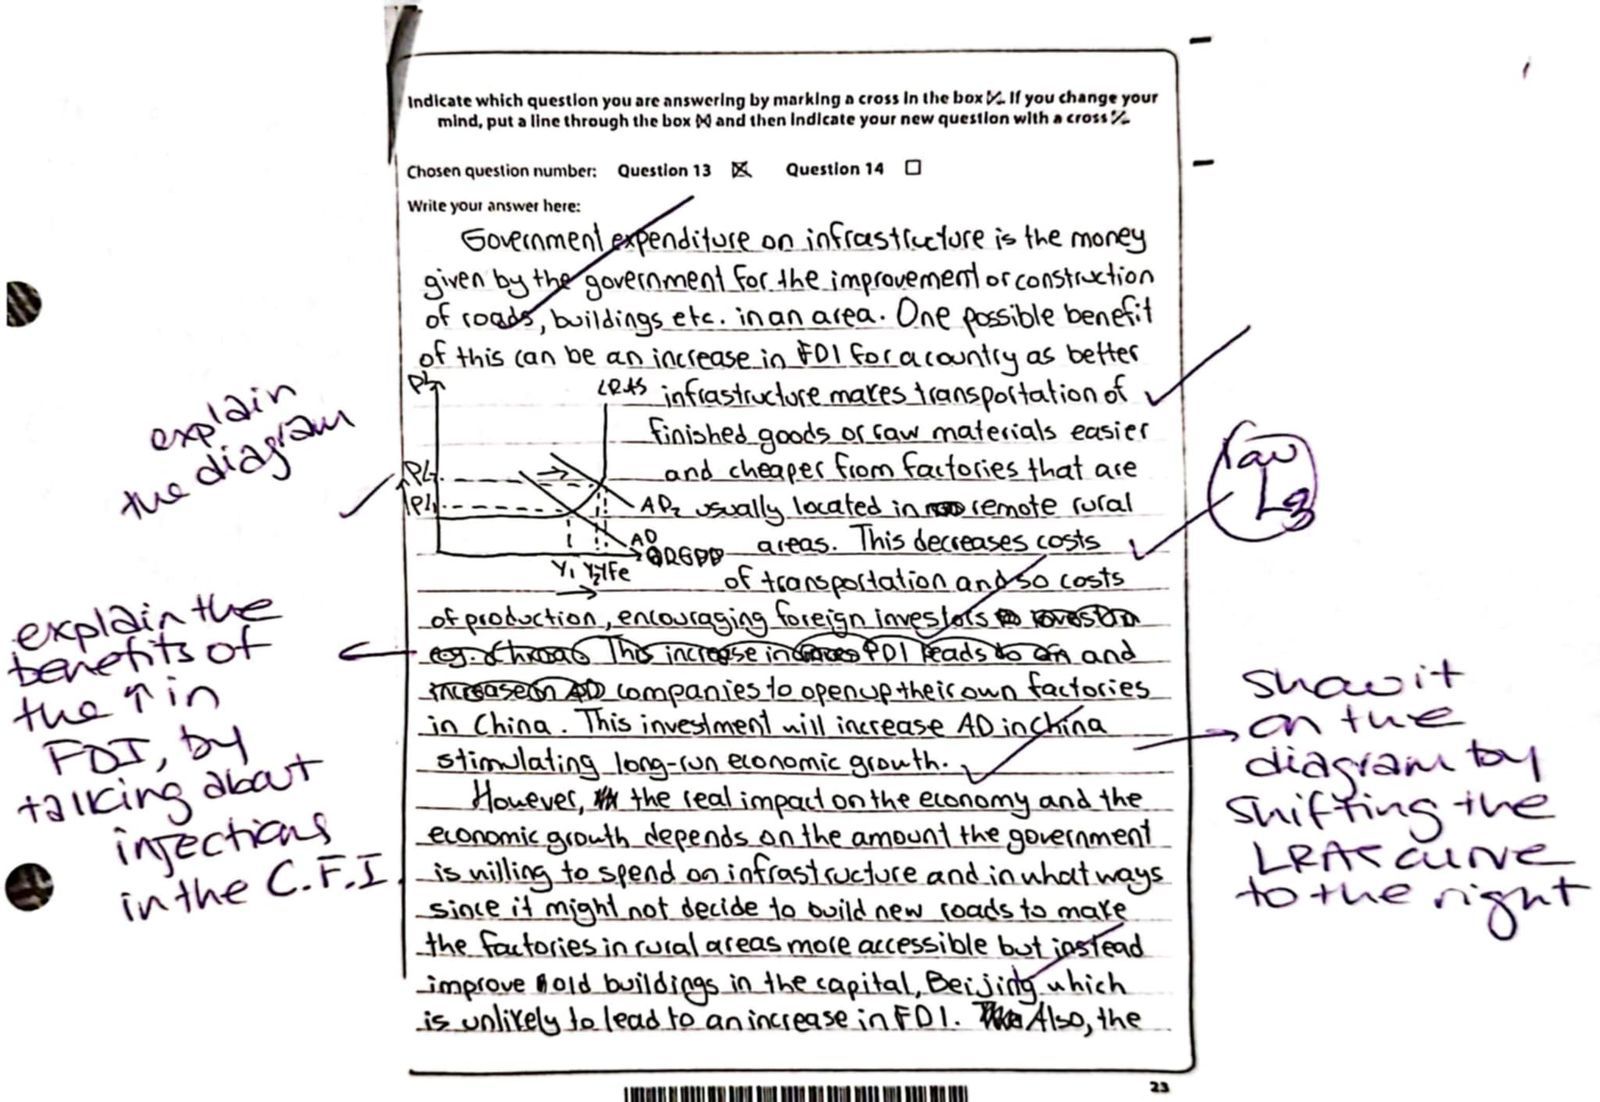 Indicate which question you are answering by marking a cross in the box. If you change your
mind, put a line through the box and then indicate your new question with a cross.
Chosen question number: Question 13 Question 14
Write your answer here:
Government expenditure on infrastructure is the money
given by the government for the improvement or construction
of roads, buildings etc. in an area. One possible benefit
of this can be an increase in FDI for a country as better
infrastructure makes transportation of
finished goods or raw materials easier
and cheaper from factories that are
usually located in remote rural
areas. This decreases costs
of transportation and so costs
of production, encouraging foreign investors
This increase in FDI leads to an and
increase in AD companies to open up their own factories
in China. This investment will increase AD in China
stimulating long-run economic growth.
However, the real impact on the economy and the
economic growth depends on the amount the government
is willing to spend on infrastructure and in what ways
since it might not decide to build new roads to make
the factories in rural areas more accessible but instead
improve old buildings in the capital, Beijing which
is unlikely to lead to an increase in FDI. Also, the
PL
LRAS
PL2
PL1
AD2
AD
RGDP
Y1 Y2 Yfe
explain
the diagram
explain the
benefits of
the ↑ in
FDI, by
talking about
injections
in the C.F.I.
low
L3
show it
on the
diagram by
shifting the
LRAS curve
to the right
23